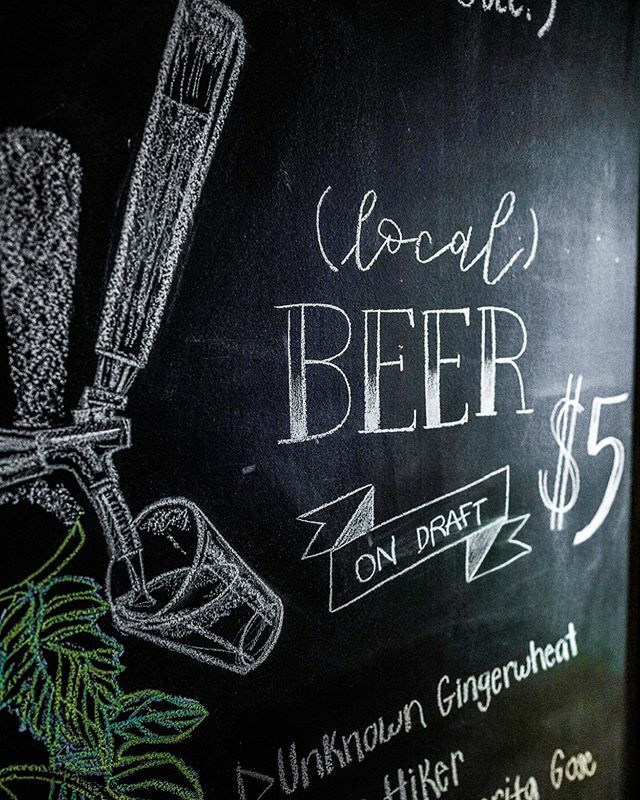 (local)
BEER
$5
ON DRAFT
Unknown Gingerwheat
Hiker
Gose